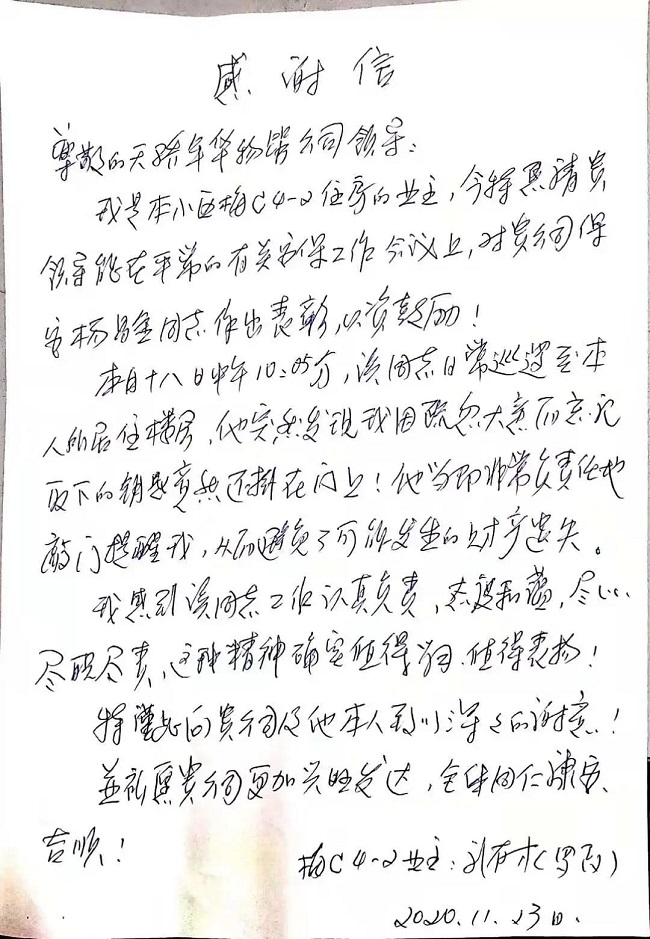 感谢信
尊敬的天骄年华物业公司领导：
我是本小区梅C4-2住房的业主，今特恳请贵
领导能在平常的有关安保工作会议上，对贵公司保
安杨昌金同志作出表彰，以资鼓励！
本月十八日中午10:05分，该同志日常巡逻至本
人所居住楼层，他突然发现我因疏忽大意而忘记
取下的钥匙竟然还掛在门上！他当即非常负责任地
敲门提醒我，从而避免了可能发生的财产遗失。
我感到该同志工作认真负责，态度和蔼，尽心、
尽职尽责、这种精神确实值得学习、值得表扬！
特藉此向贵公司及他本人致以深深的谢意！
並祝愿贵公司更加兴旺发达，全体同仁康安、
吉顺！
梅C4-2业主：
2020.11.23日.